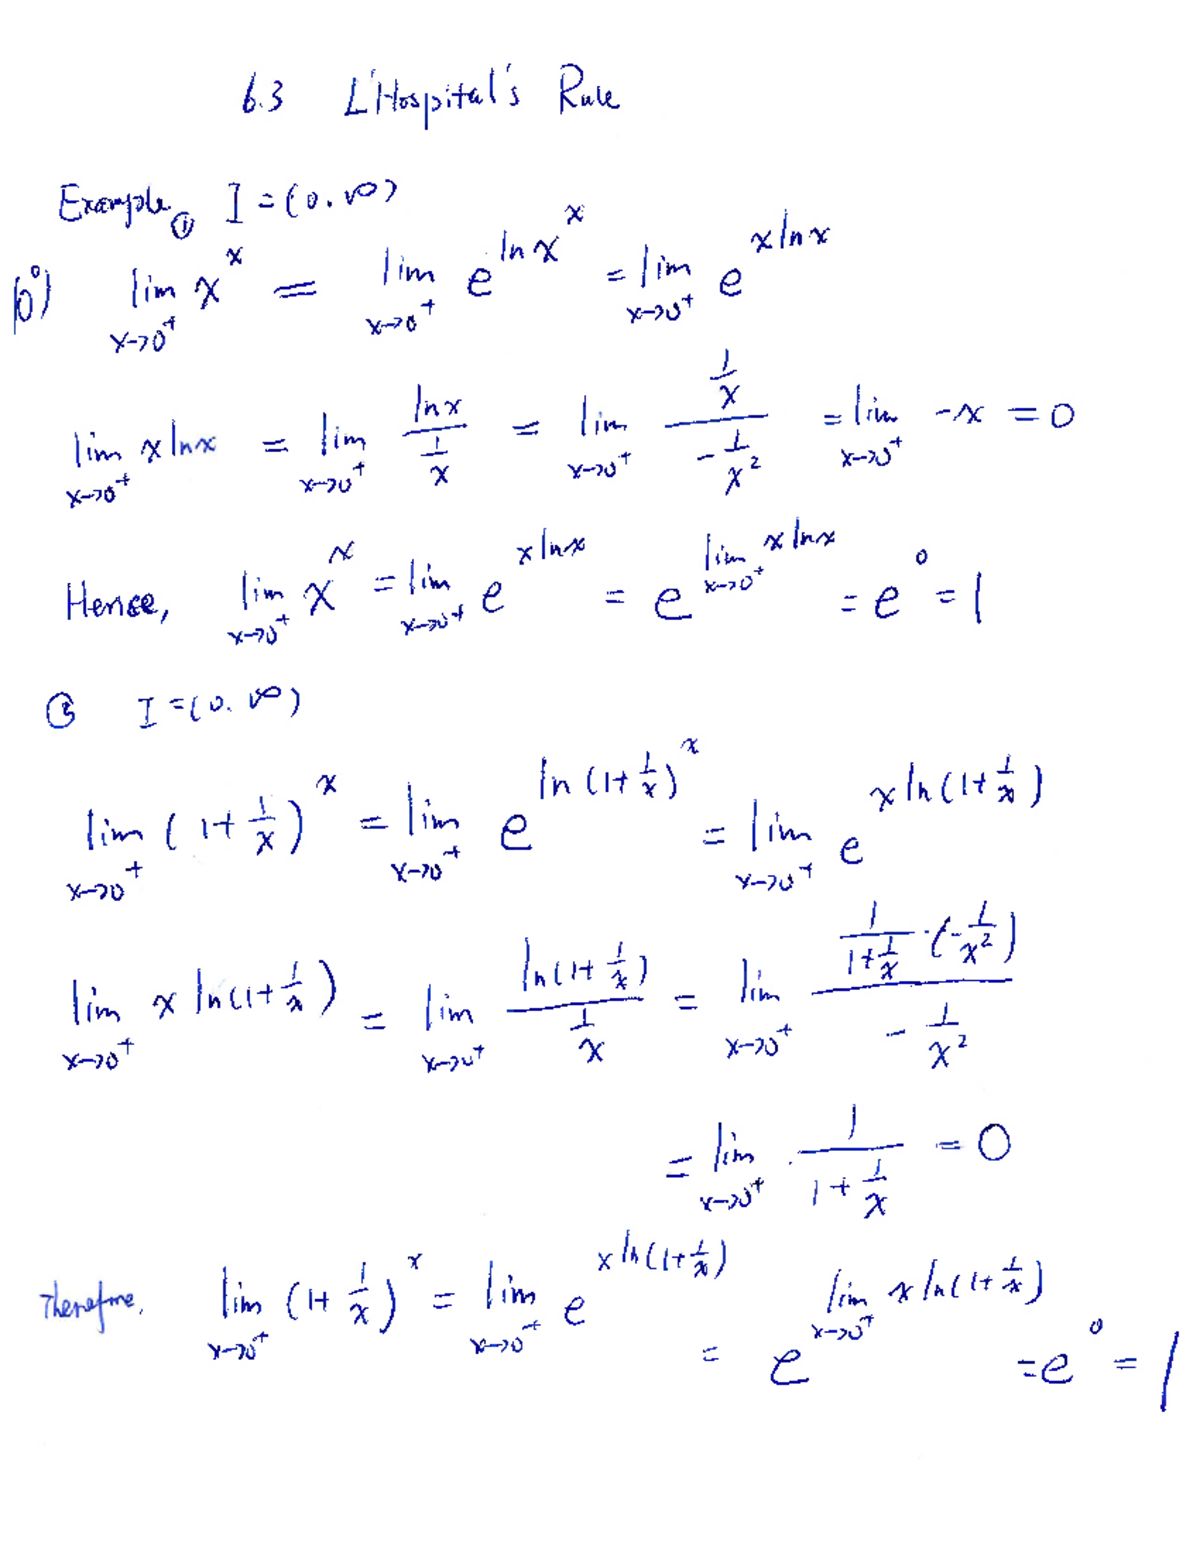 6.3 L'Hospital's Rule
Example ① I = (0. ∞)
(0^0) lim_{x→0^+} x^x = lim_{x→0^+} e^{ln x^x} = lim_{x→0^+} e^{x ln x}
lim_{x→0^+} x ln x = lim_{x→0^+} (ln x)/(1/x) = lim_{x→0^+} (1/x)/(-1/x^2) = lim_{x→0^+} -x = 0
Hence, lim_{x→0^+} x^x = lim_{x→0^+} e^{x ln x} = e^{lim_{x→0^+} x ln x} = e^0 = 1
I = (0. ∞)
lim_{x→0^+} (1+1/x)^x = lim_{x→0^+} e^{ln (1+1/x)^x} = lim_{x→0^+} e^{x ln (1+1/x)}
lim_{x→0^+} x ln(1+1/x) = lim_{x→0^+} (ln(1+1/x))/(1/x) = lim_{x→0^+} (1/(1+1/x)·(-1/x^2))/(-1/x^2)
= lim_{x→0^+} 1/(1+1/x) = 0
Therefore, lim_{x→0^+} (1+1/x)^x = lim_{x→0^+} e^{x ln(1+1/x)} = e^{lim_{x→0^+} x ln(1+1/x)} = e^0 = 1